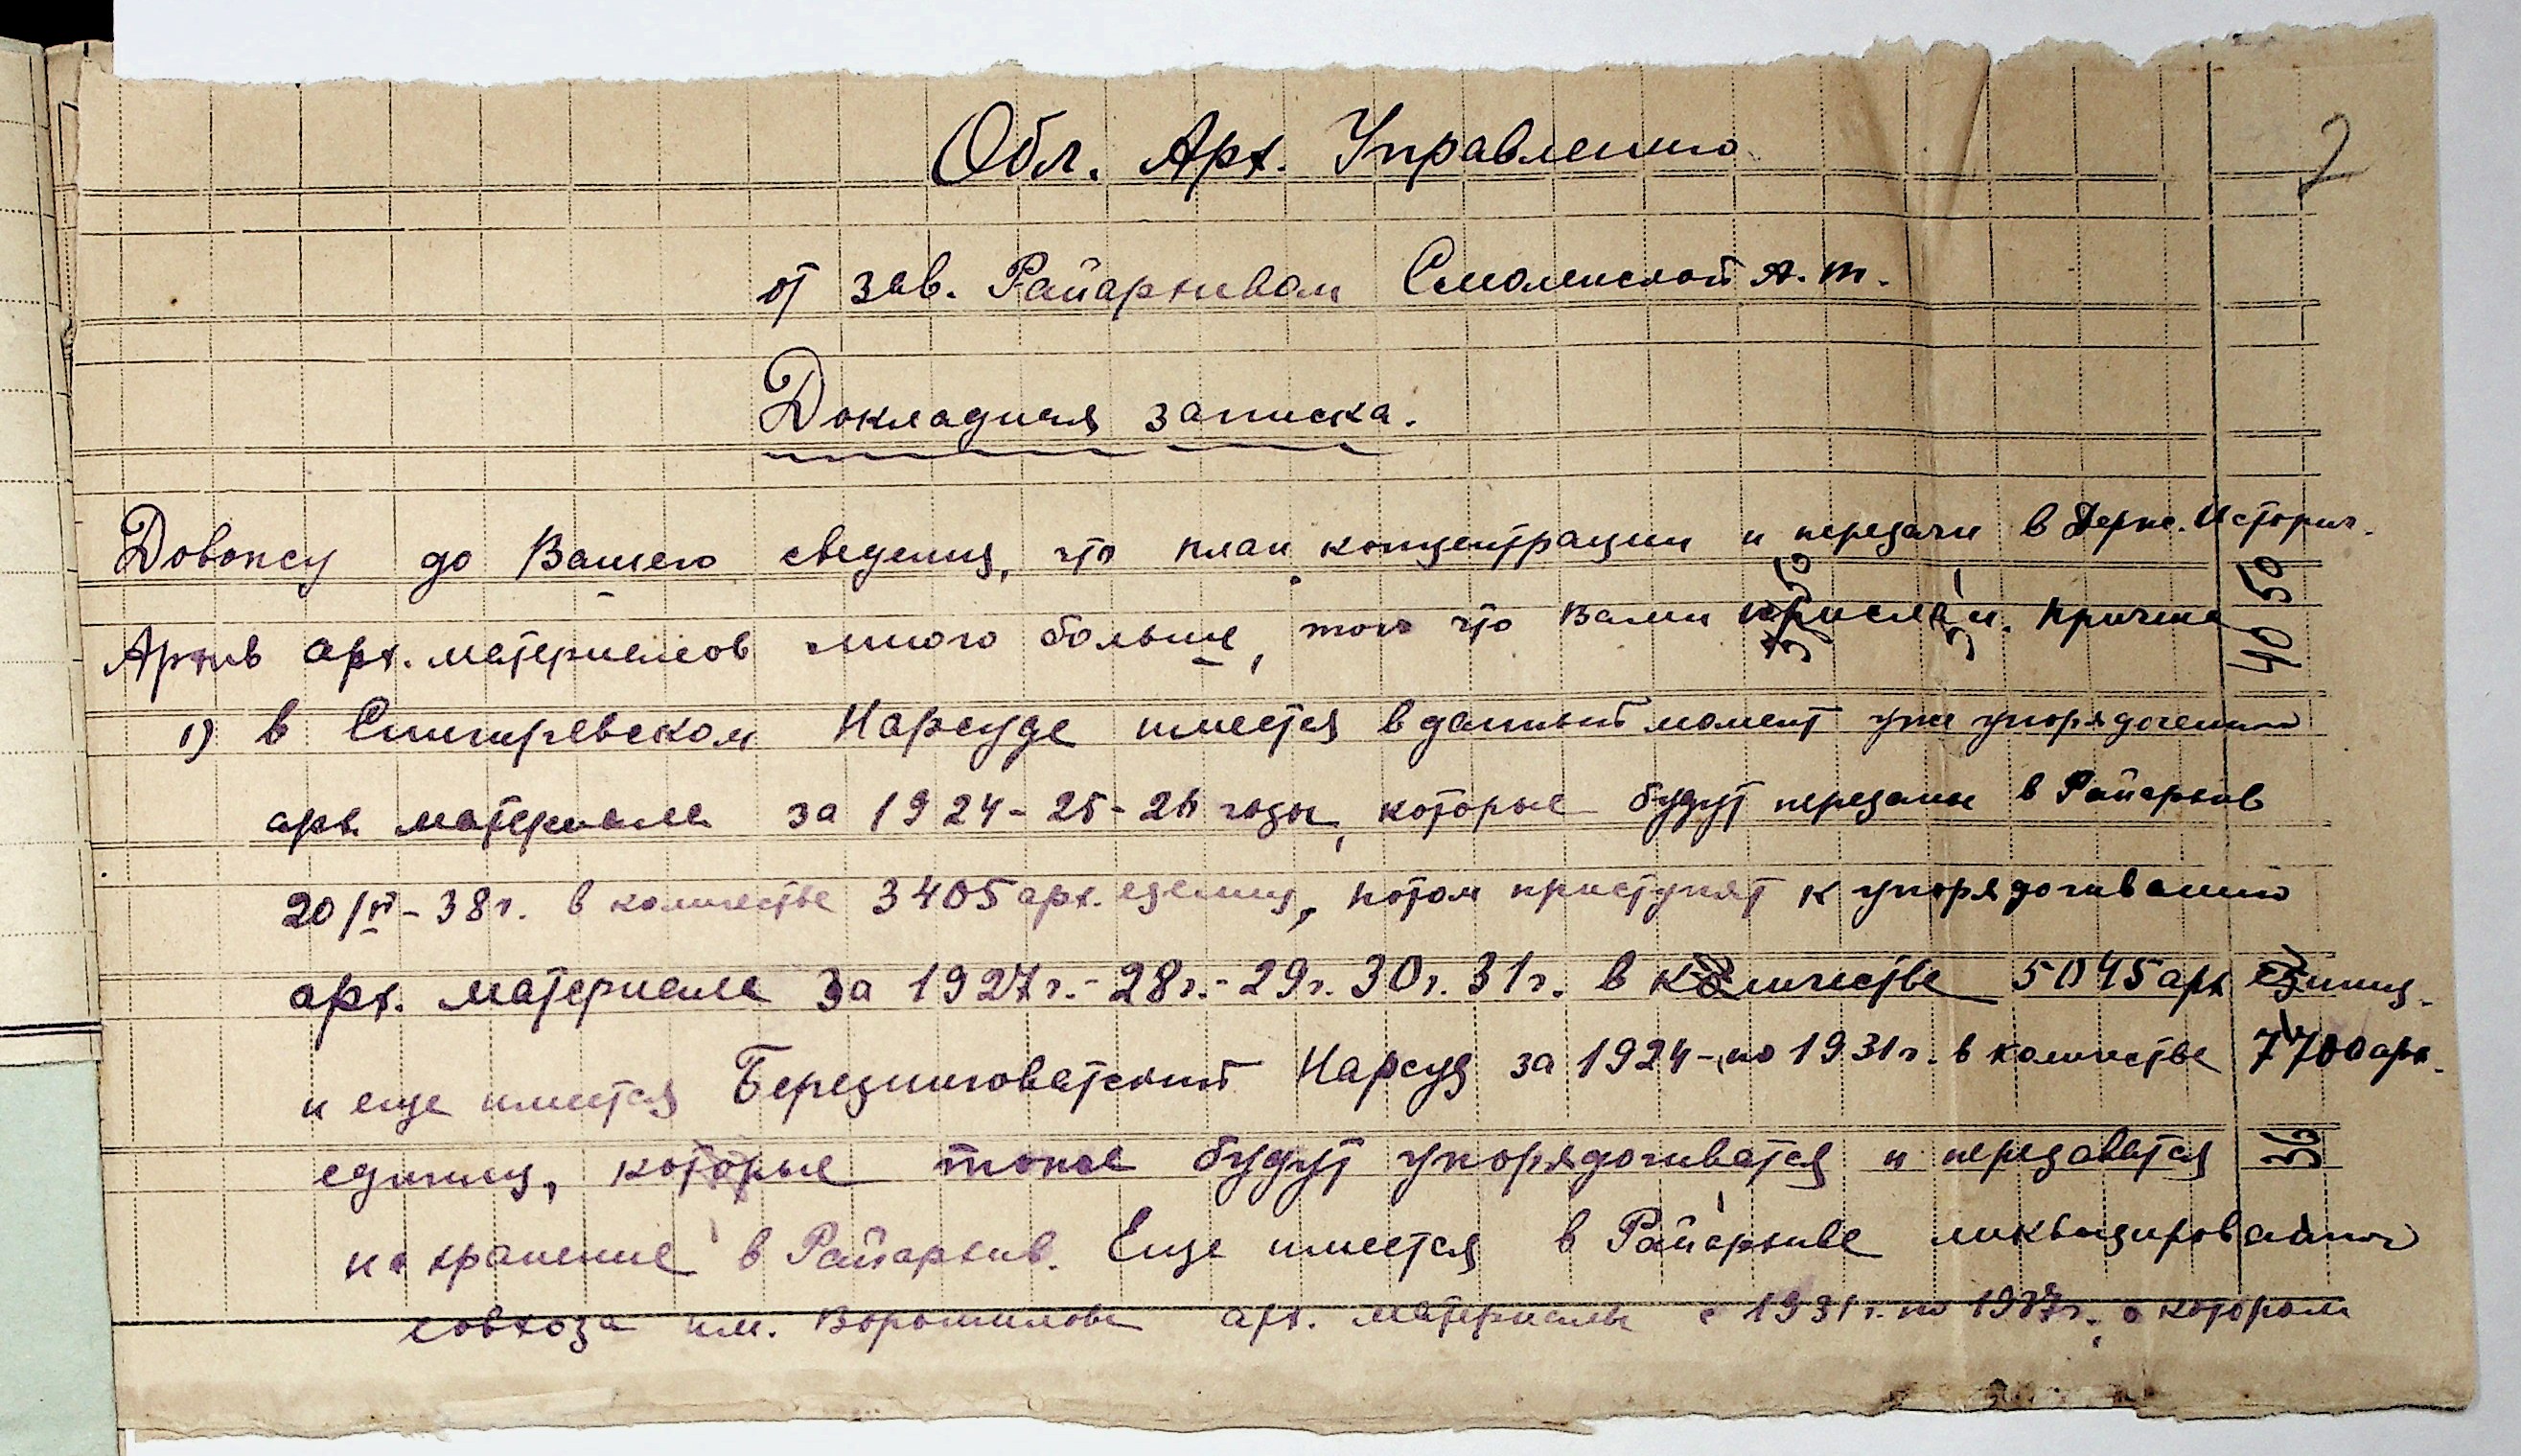 2
Обл. Арх. Управлению
от зав. Райархивом Смоленской А. М.
Докладная записка.
Довожу до Вашего сведения, что план концентрации и передачи в Держ. Историч.
Архив арх. материалов много больше, того что Вами прислан. Причем
40 50
1) в Снигиревском Нарсуде имеется в данный момент уже упорядочении
арх. материала за 1924-25-26 годы, которые будут переданы в Райархив
20/IV-38г. в количестве 3405 арх. едениц, потом приступят к упорядочиванию
арх. материала за 1927г.-28г.-29г. 30г. 31г. в количестве 5045 арх единиц.
и еще имеется Березниговатский Нарсуд за 1924-по 1931г. в количестве 7700 арх.
единиц, которые тоже будут упорядочиватся и передаватся
36
на хранение в Райархив. Еще имеется в Райархиве ликвидированного
совхоза им. Ворошилова арх. материалы с 1931г. по 1937г., о котором